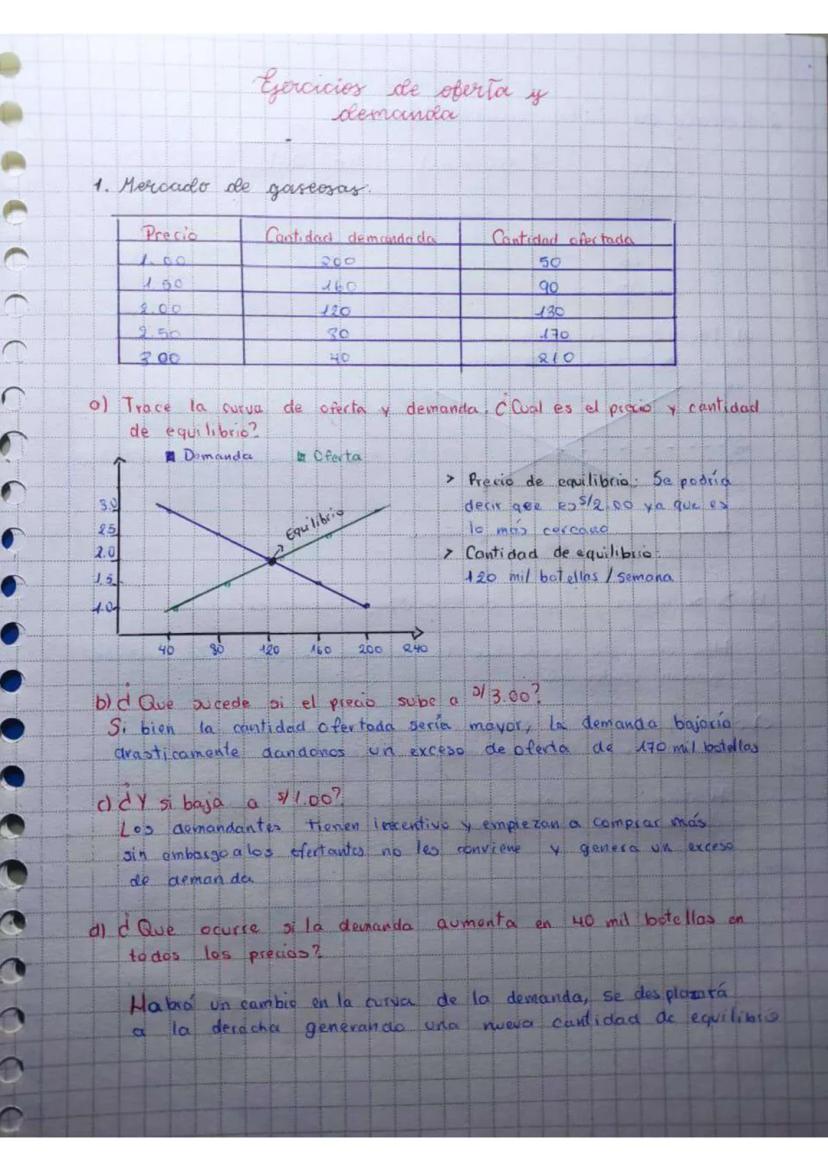 Ejercicios de oferta y
demanda
1. Mercado de gaseosas.
Precio Cantidad demandada Cantidad ofectada
1.00 200 50
1.50 160 90
2.00 120 130
2.50 30 170
3.00 40 210
a) Trace la curva de oferta y demanda. ¿Cual es el precio y cantidad
de equilibrio?
Demanda Oferta
> Precio de equilibrio: Se podría
decir qee es S/2.00 ya que es
lo más cercano
> Cantidad de equilibrio:
120 mil botellas / semana
Equilibrio
3.0
2.5
2.0
1.5
1.0
40 80 120 160 200 240
b) ¿Que sucede si el precio sube a S/3.00?
Si bien la cantidad ofertada sería mayor, la demanda bajaría
drasticamente dandonos un exceso de oferta de 170 mil botellas
c) ¿Y si baja a S/1.00?
Los demandantes tienen incentivo y empiezan a comprar más
sin embargo a los ofertantes no les conviene y genera un exceso
de demanda
d) ¿Que ocurre si la demanda aumenta en 40 mil botellas en
todos los precios?
Habrá un cambio en la curva de la demanda, se desplazará
a la derecha generando una nueva cantidad de equilibrio